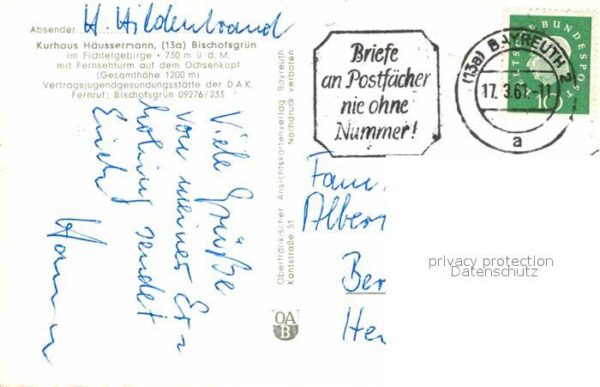 Absender: H. Hildenbrand
Kurhaus Häussermann, (13a) Bischofsgrün
im Fichtelgebirge • 730 m ü. d. M.
mit Fernsehturm auf dem Ochsenkopf
(Gesamthöhe 1200 m)
Vertragsjugendgesundungsstätte der D.A.K.
Fernruf: Bischofsgrün 09276/233
Viele Grüße
von meiner Er=
holung sendet
Euch
Oberfränkischer Ansichtskartenvertag Bayreuth
Kantstraße 51
Nachdruck verboten
OA
B
Briefe
an Postfächer
nie ohne
Nummer!
(13a) BAYREUTH 2
17.3.61.-11
a
DEUTSCHE BUNDESPOST
10
Fam.
Albers
Ber
Her
privacy protection
Datenschutz